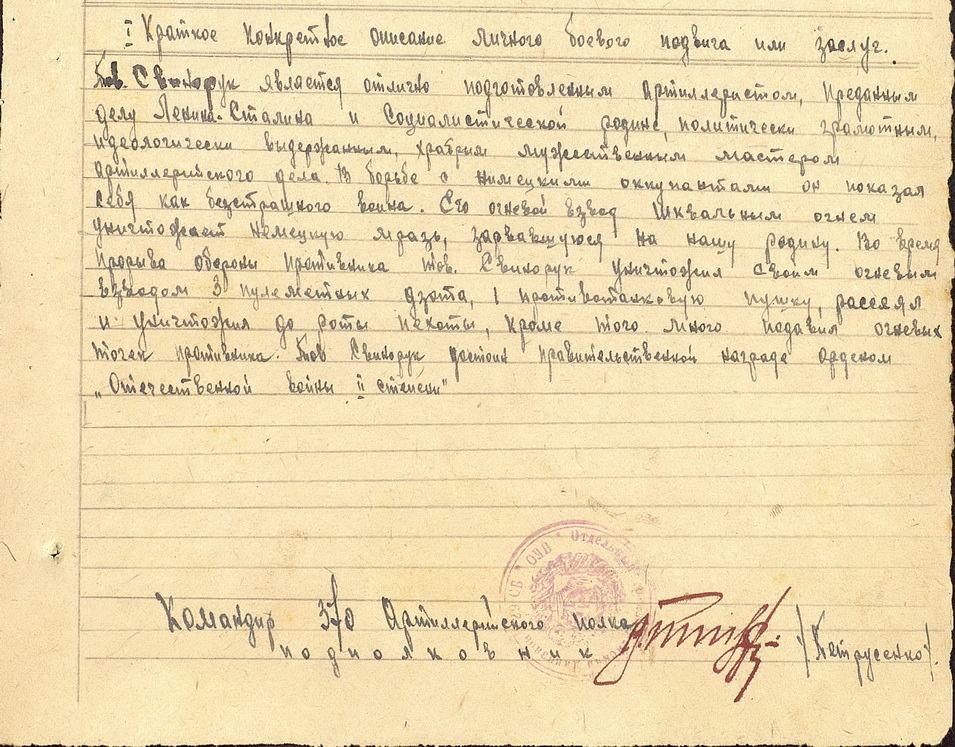 I Краткое конкретное описание личного боевого подвига или заслуг.
Тов. Свинорук является отлично подготовленным артиллеристом, преданным
делу Ленина-Сталина и Социалистической родине, политически грамотным,
идеологически выдержанным, храбрым мужественным мастером
артиллерийского дела. В борьбе с немецкими оккупантами он показал
себя как безстрашного воина. Его огневой взвод шквальным огнем
уничтожает немецкую мразь, зарвавшуюся на нашу родину. Во время
прорыва обороны противника тов. Свинорук уничтожил своим огневым
взводом 3 пулеметных дзота, 1 противотанковую пушку, рассеял
и уничтожил до роты пехоты, кроме того много подавил огневых
точек противника. Тов Свинорук достоин правительственной награде орденом
„Отечественной войны II степени"
Командир 370 Артиллерийского полка
подполковник /Петрусенко/.